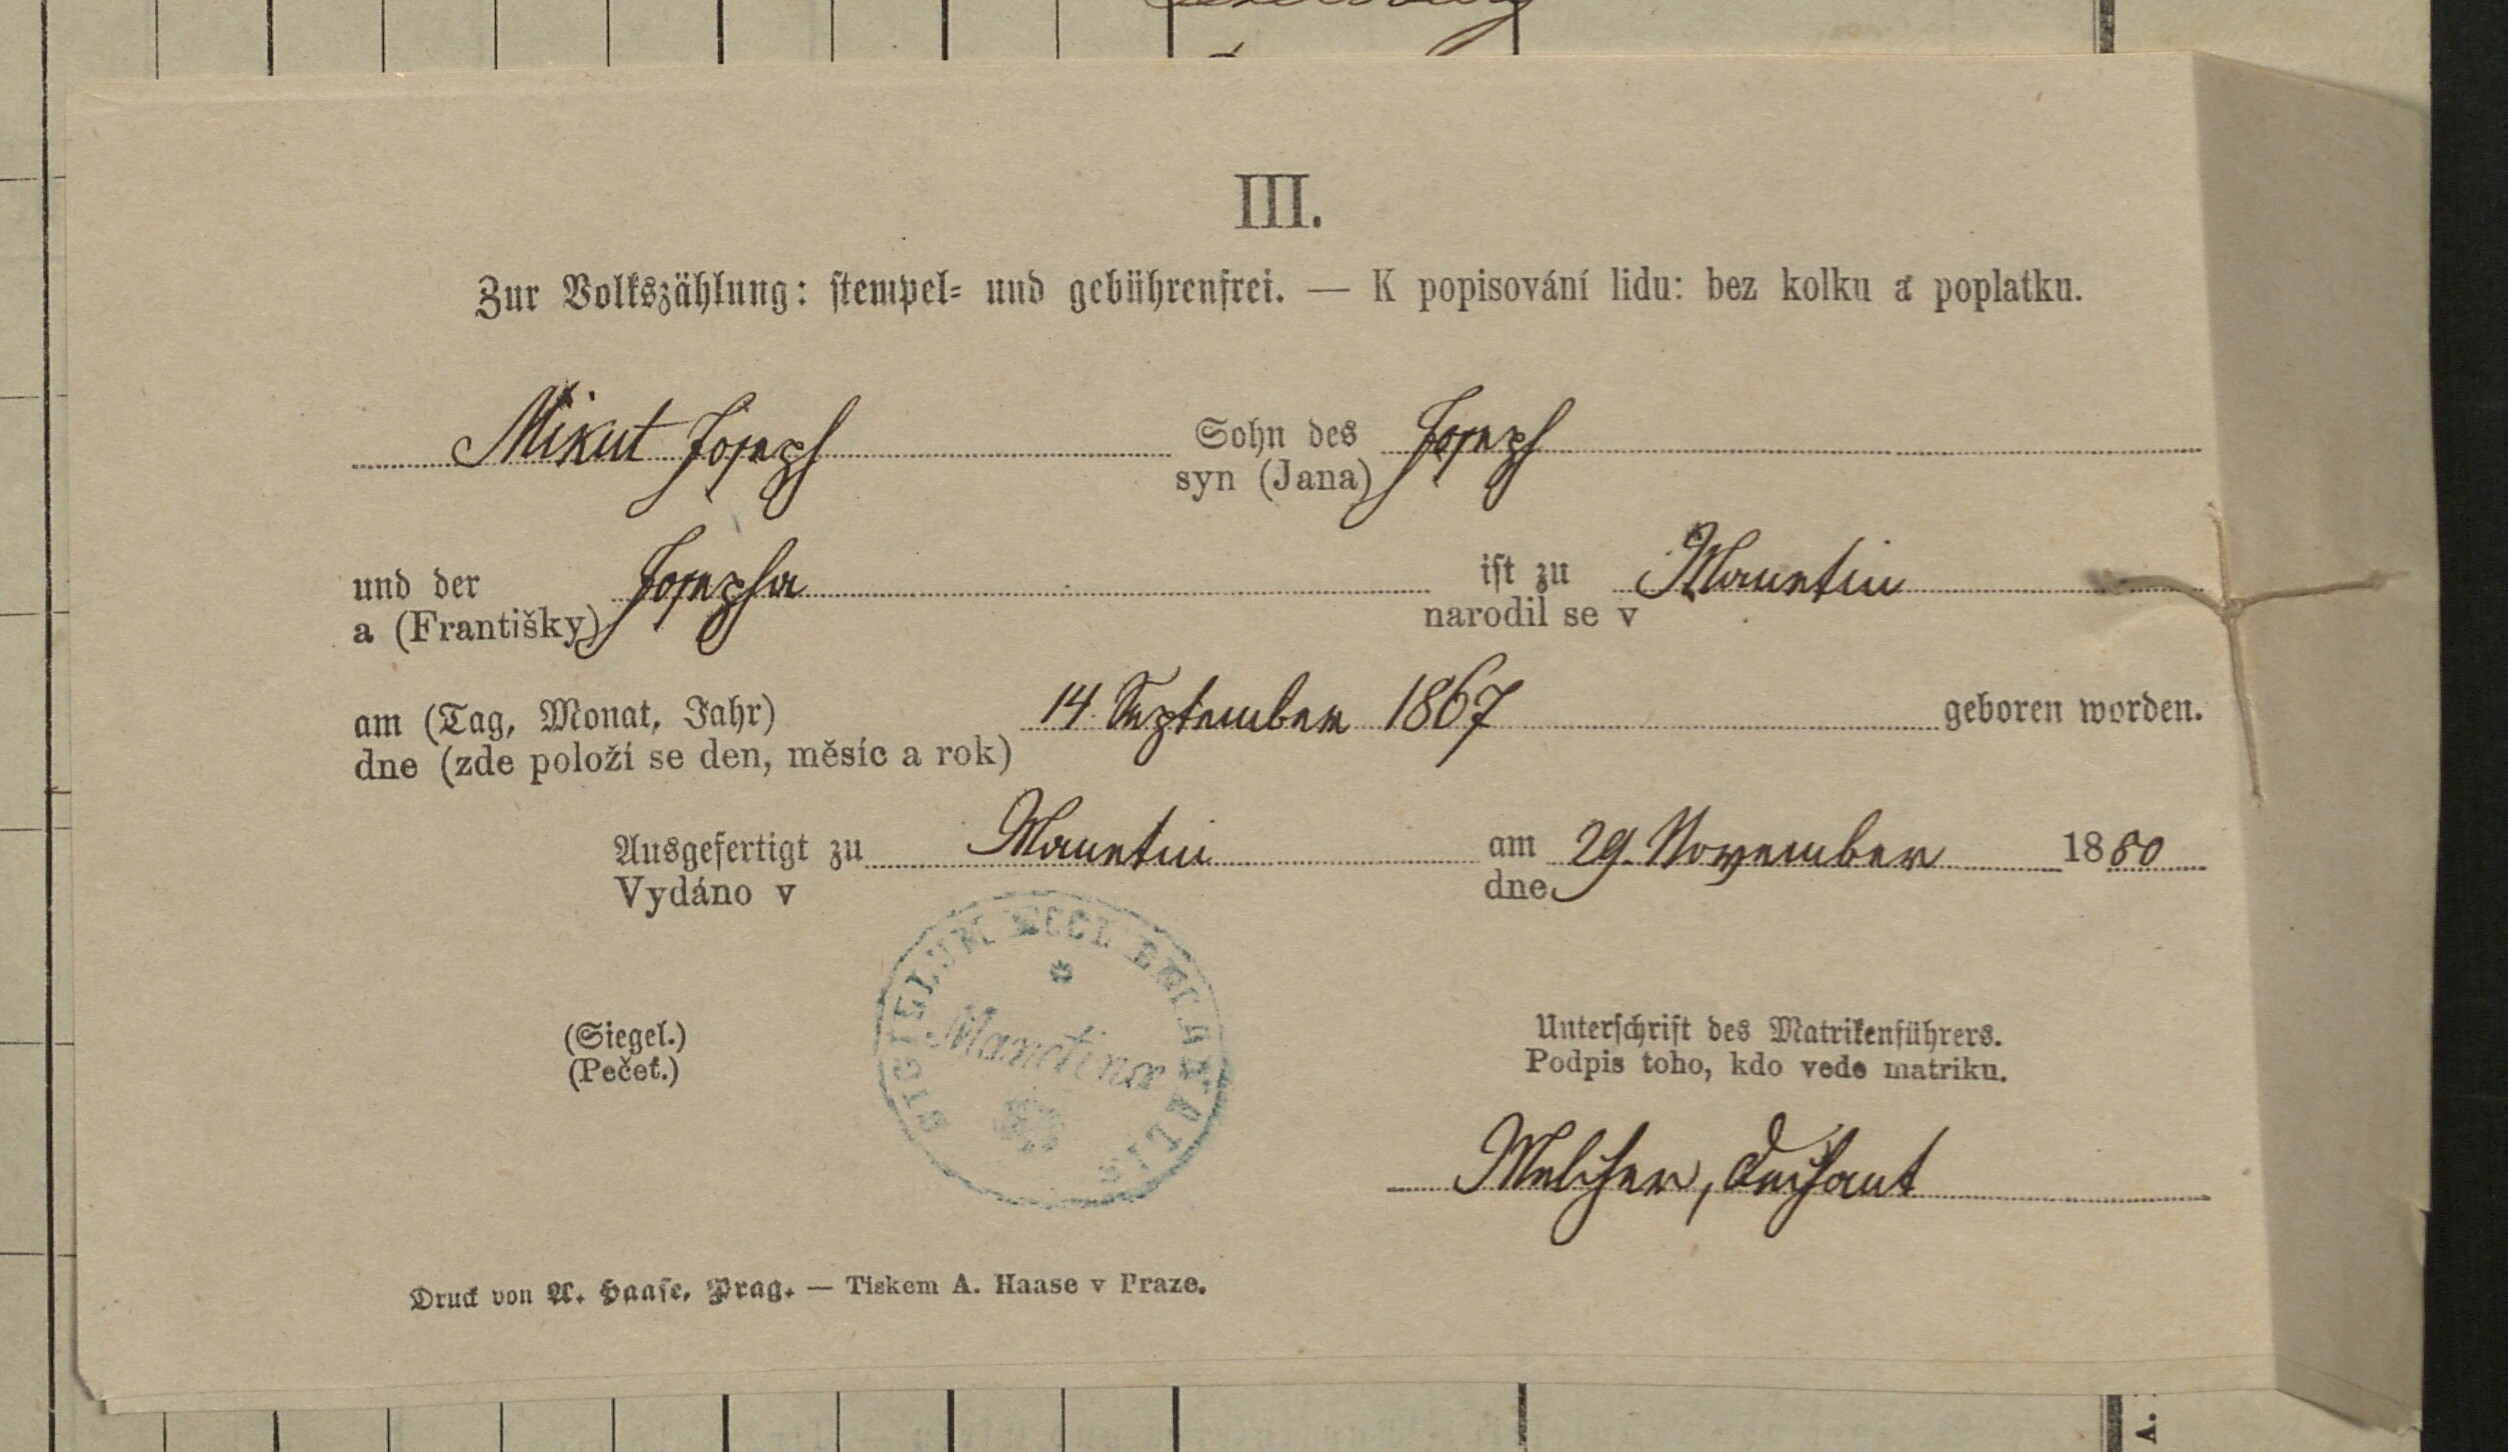 III.
Zur Volkszählung: stempel- und gebührenfrei. — K popisování lidu: bez kolku a poplatku.
Mikut Joseph Sohn des Joseph
syn (Jana)
und der Josepha ist zu Manetin
a (Františky) narodil se v
am (Tag, Monat, Jahr) 14. September 1867 geboren worden.
dne (zde položí se den, měsíc a rok)
Ausgefertigt zu Manetin am 29. November 1880
Vydáno v dne
SIGILLUM ECCL
Manetinæ
(Siegel.)
(Pečeť.)
Unterschrift des Matrikenführers.
Podpis toho, kdo vede matriku.
Melcher, Dechant
Druck von A. Haase, Prag. — Tiskem A. Haase v Praze.
A.